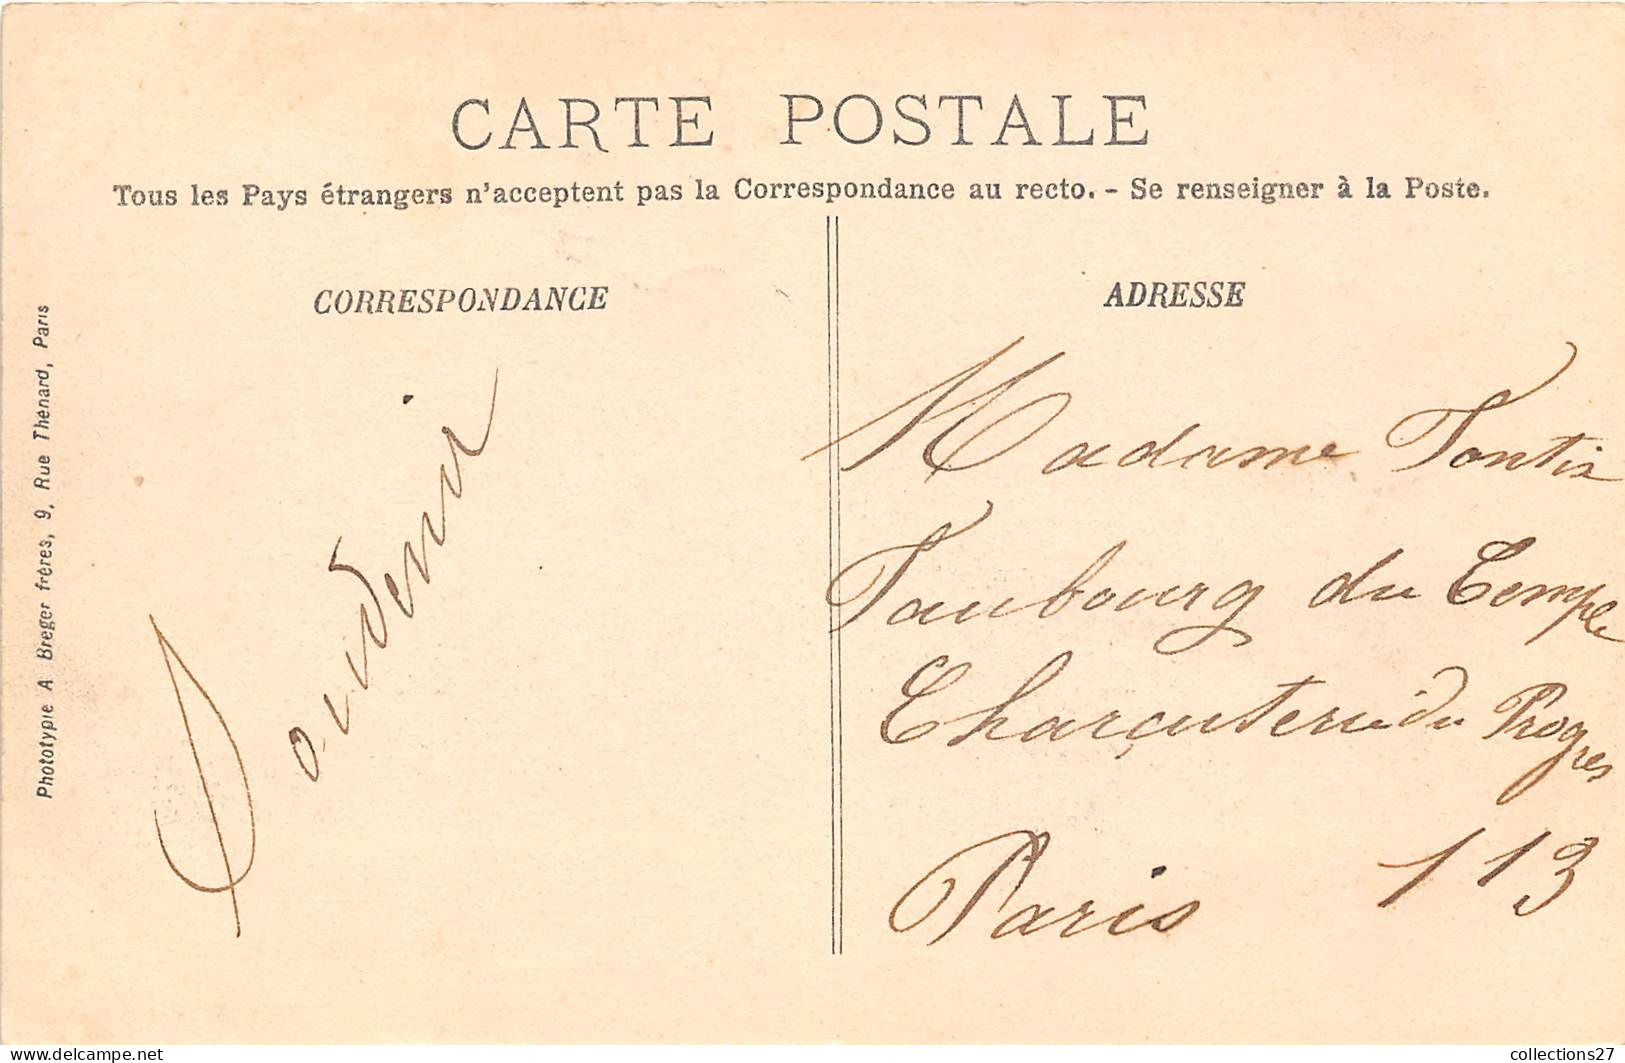 CARTE POSTALE
Tous les Pays étrangers n'acceptent pas la Correspondance au recto. - Se renseigner à la Poste.
CORRESPONDANCE
Souvenir
ADRESSE
Madame Tontin
Faubourg du Temple
Charcuterie du Progres
Paris 113
Phototypie A Breger frères, 9, Rue Thénard, Paris
collections27